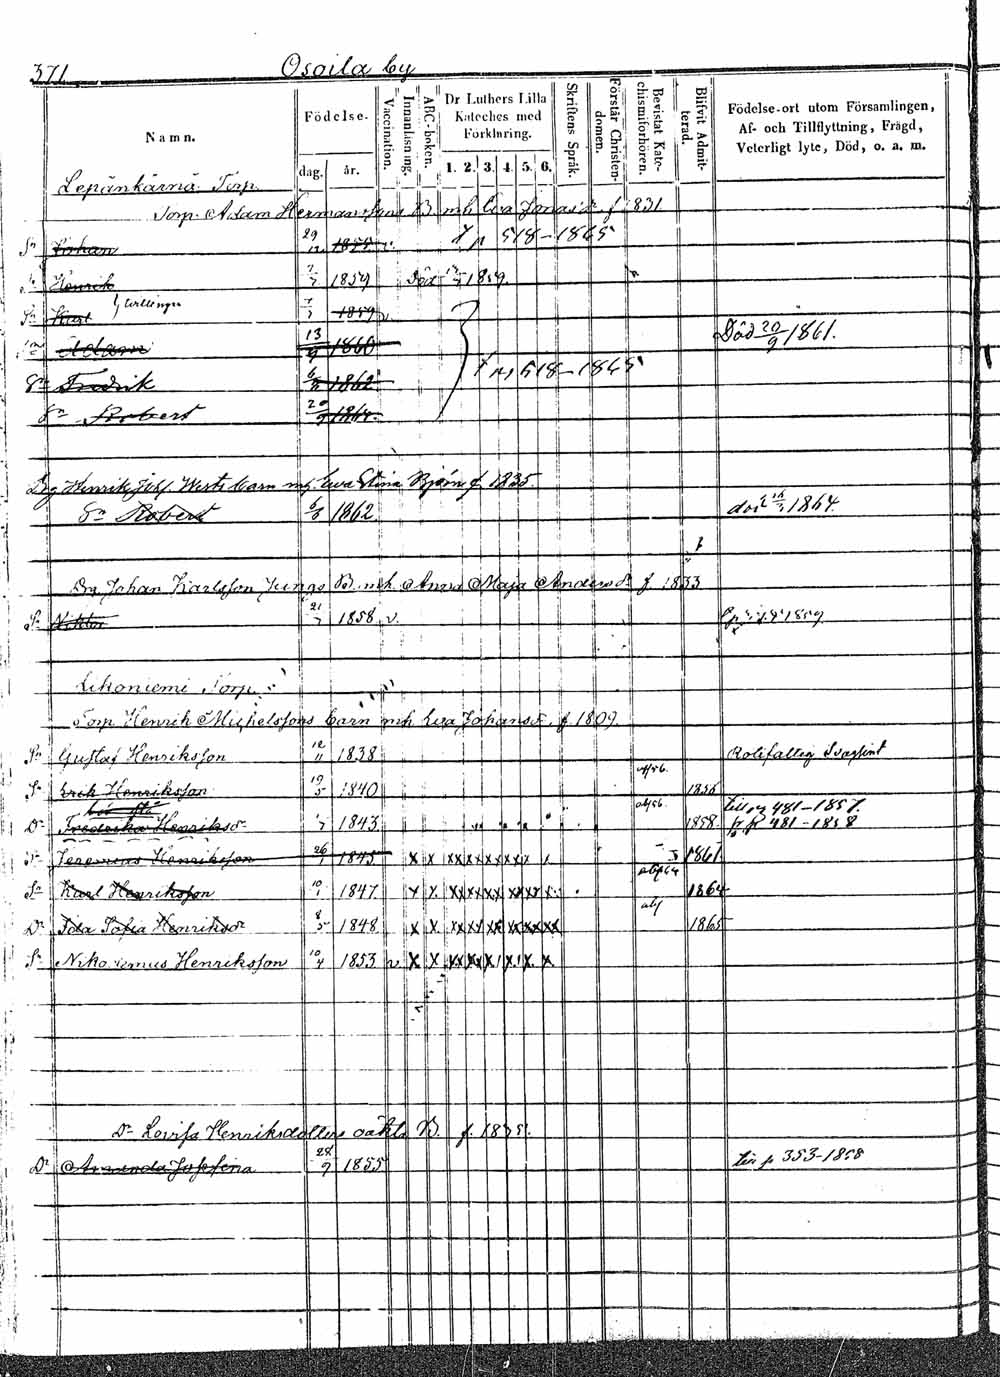 371 Osoila by
Namn. Födelse- dag. år. Vaccination. Innanläsning. ABC-boken. Dr Luthers Lilla Kateches med Förklaring. 1. 2. 3. 4. 5. 6. Skriftens Språk. Förstår Christendomen. Bevistat Katechismiförhören. Blifvit Admitterad. Födelse-ort utom Församlingen, Af- och Tillflyttning, Frägd, Veterligt lyte, Död, o. a. m.
Lepänkärnä Torp.
Torp. Adam Hermanssons B. mh Eva Jonasdr f. 1831
Sn Johan 29/12 1855 v. 518-1865
Sn Henrik 1859 Död 1859.
Sn Karl } tvillingar 1859 v.
Sn Adam 13/9 1860 Död 20/9 1861.
Sn Fredrik 1862 518-1865
Sn Robert 20/9 1864.
Drg Henrik Wests barn m Eva Stina Björn f. 1835.
Sn Robert 6/8 1862 död 1864.
Drg Johan Karlsson Jungs B. mh. Anna Maja Andersdr f. 1833
Sn Viktor 21/7 1858 v. 1859
Likoniemi Torp.
Torp Henrik Michelssons barn mh Eva Johansdr f. 1809.
Sn Gustaf Henriksson 12/11 1838
Sn Erik Henriksson 19/5 1840 1856
till pg 481-1857.
Dr Fredrika Henriksdr 1843 1858 fr p 481-1858
Sn Jeremias Henriksson 26/9 1845 x x xx xx xx xx x 1861
Sn Karl Henriksson 10/1 1847 x x. xx xx xx xx xx x. 1864
Dr Ida Sofia Henriksdr 8/5 1848 x x xx xx xx xx xx xx 1865
Sn Nikodemus Henriksson 10/4 1853 v x x xx xx x x x. x.
Dr Lovisa Henriksdotters oäkta B. f. 1835.
Dr Amanda Josefina 28/9 1855 till p 353-1858